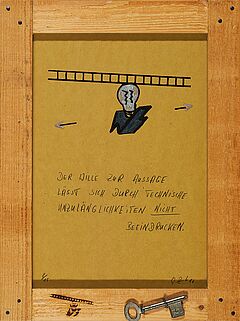 DER WILLE ZUR AUSSAGE
LÄSST SICH DURCH TECHNISCHE
UNZULÄNGLICHKEITEN NICHT
BEEINDRUCKEN.